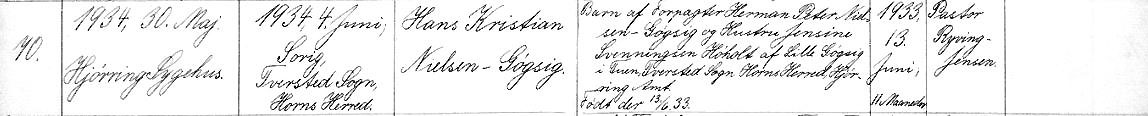 10.
1934, 30. Maj.
Hjørring Sygehus.
1934 4. Juni,
Sorig,
Tversted Sogn,
Horns Herred.
Hans Kristian
Nielsen-Gøgsig.
Barn af Forpagter Herman Peter Niel-
sen-Gøgsig og Hustru Jensine
Svenningsen Höholt af Lille Gøgsig
i Tuen, Tversted Sogn Horns Herred, Hjør-
ring Amt
Født der 13/6 33.
1933,
13.
Juni,
11 Maaneder
Pastor
Ryving-
Jensen.